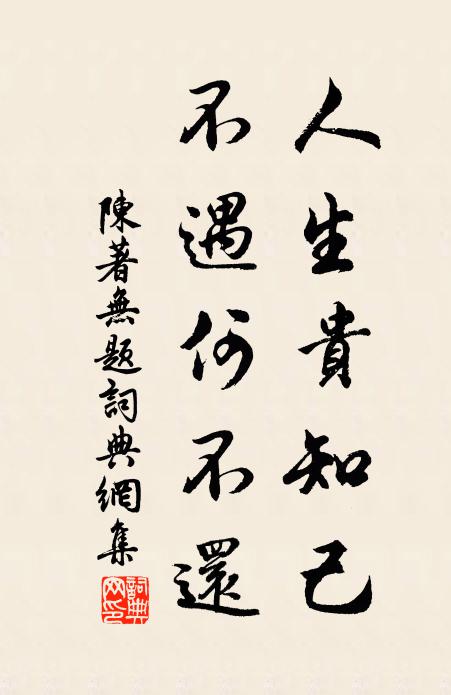 人生貴知己
不遇何不還
陳著無題詞典網集
詞典網印